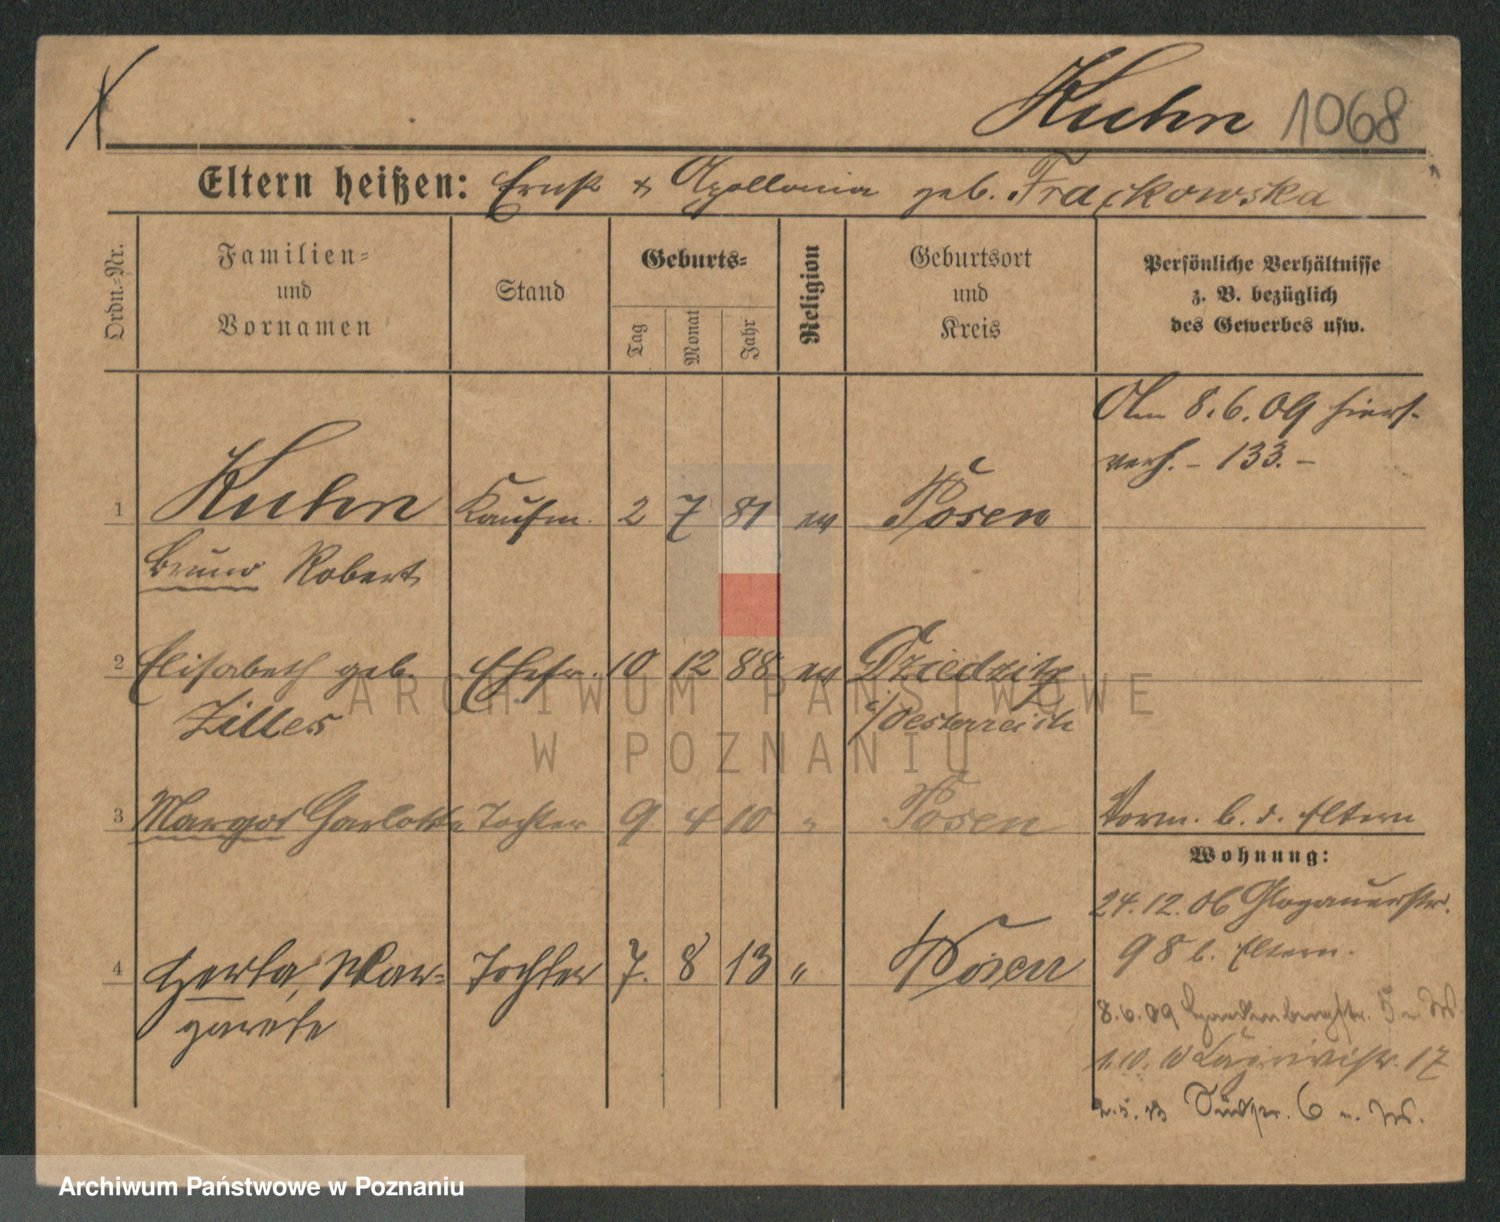 Kuhn 1068
Eltern heißen: Ernst & Apollonia geb. Frackowska
Ordn.-Nr.
Familien-
und
Vornamen
Stand
Geburts-
Tag
Monat
Jahr
Religion
Geburtsort
und
Kreis
Persönliche Verhältnisse
z. B. bezüglich
des Gewerbes usw.
Am 8.6.09 hiers.
verh. - 133. -
1 Kuhn Kaufm. 2 7 81 ev Posen
Bruno Robert
2 Elisabeth geb. Ehefr. 10 12 88 ev Dziedzitz
Zilles i/Oesterreich
3 Margot Charlotte Tochter 9 4 10 " Posen
Vorm. b. d. Eltern
Wohnung:
24.12.06 Glogauerstr.
98 b. Eltern.
4 Herta, Mar- Tochter 7. 8 13 " Posen
garete
8.6.09 Hardenbergstr. 5
17
6
ARCHIWUM PAŃSTWOWE
W POZNANIU
Archiwum Państwowe w Poznaniu